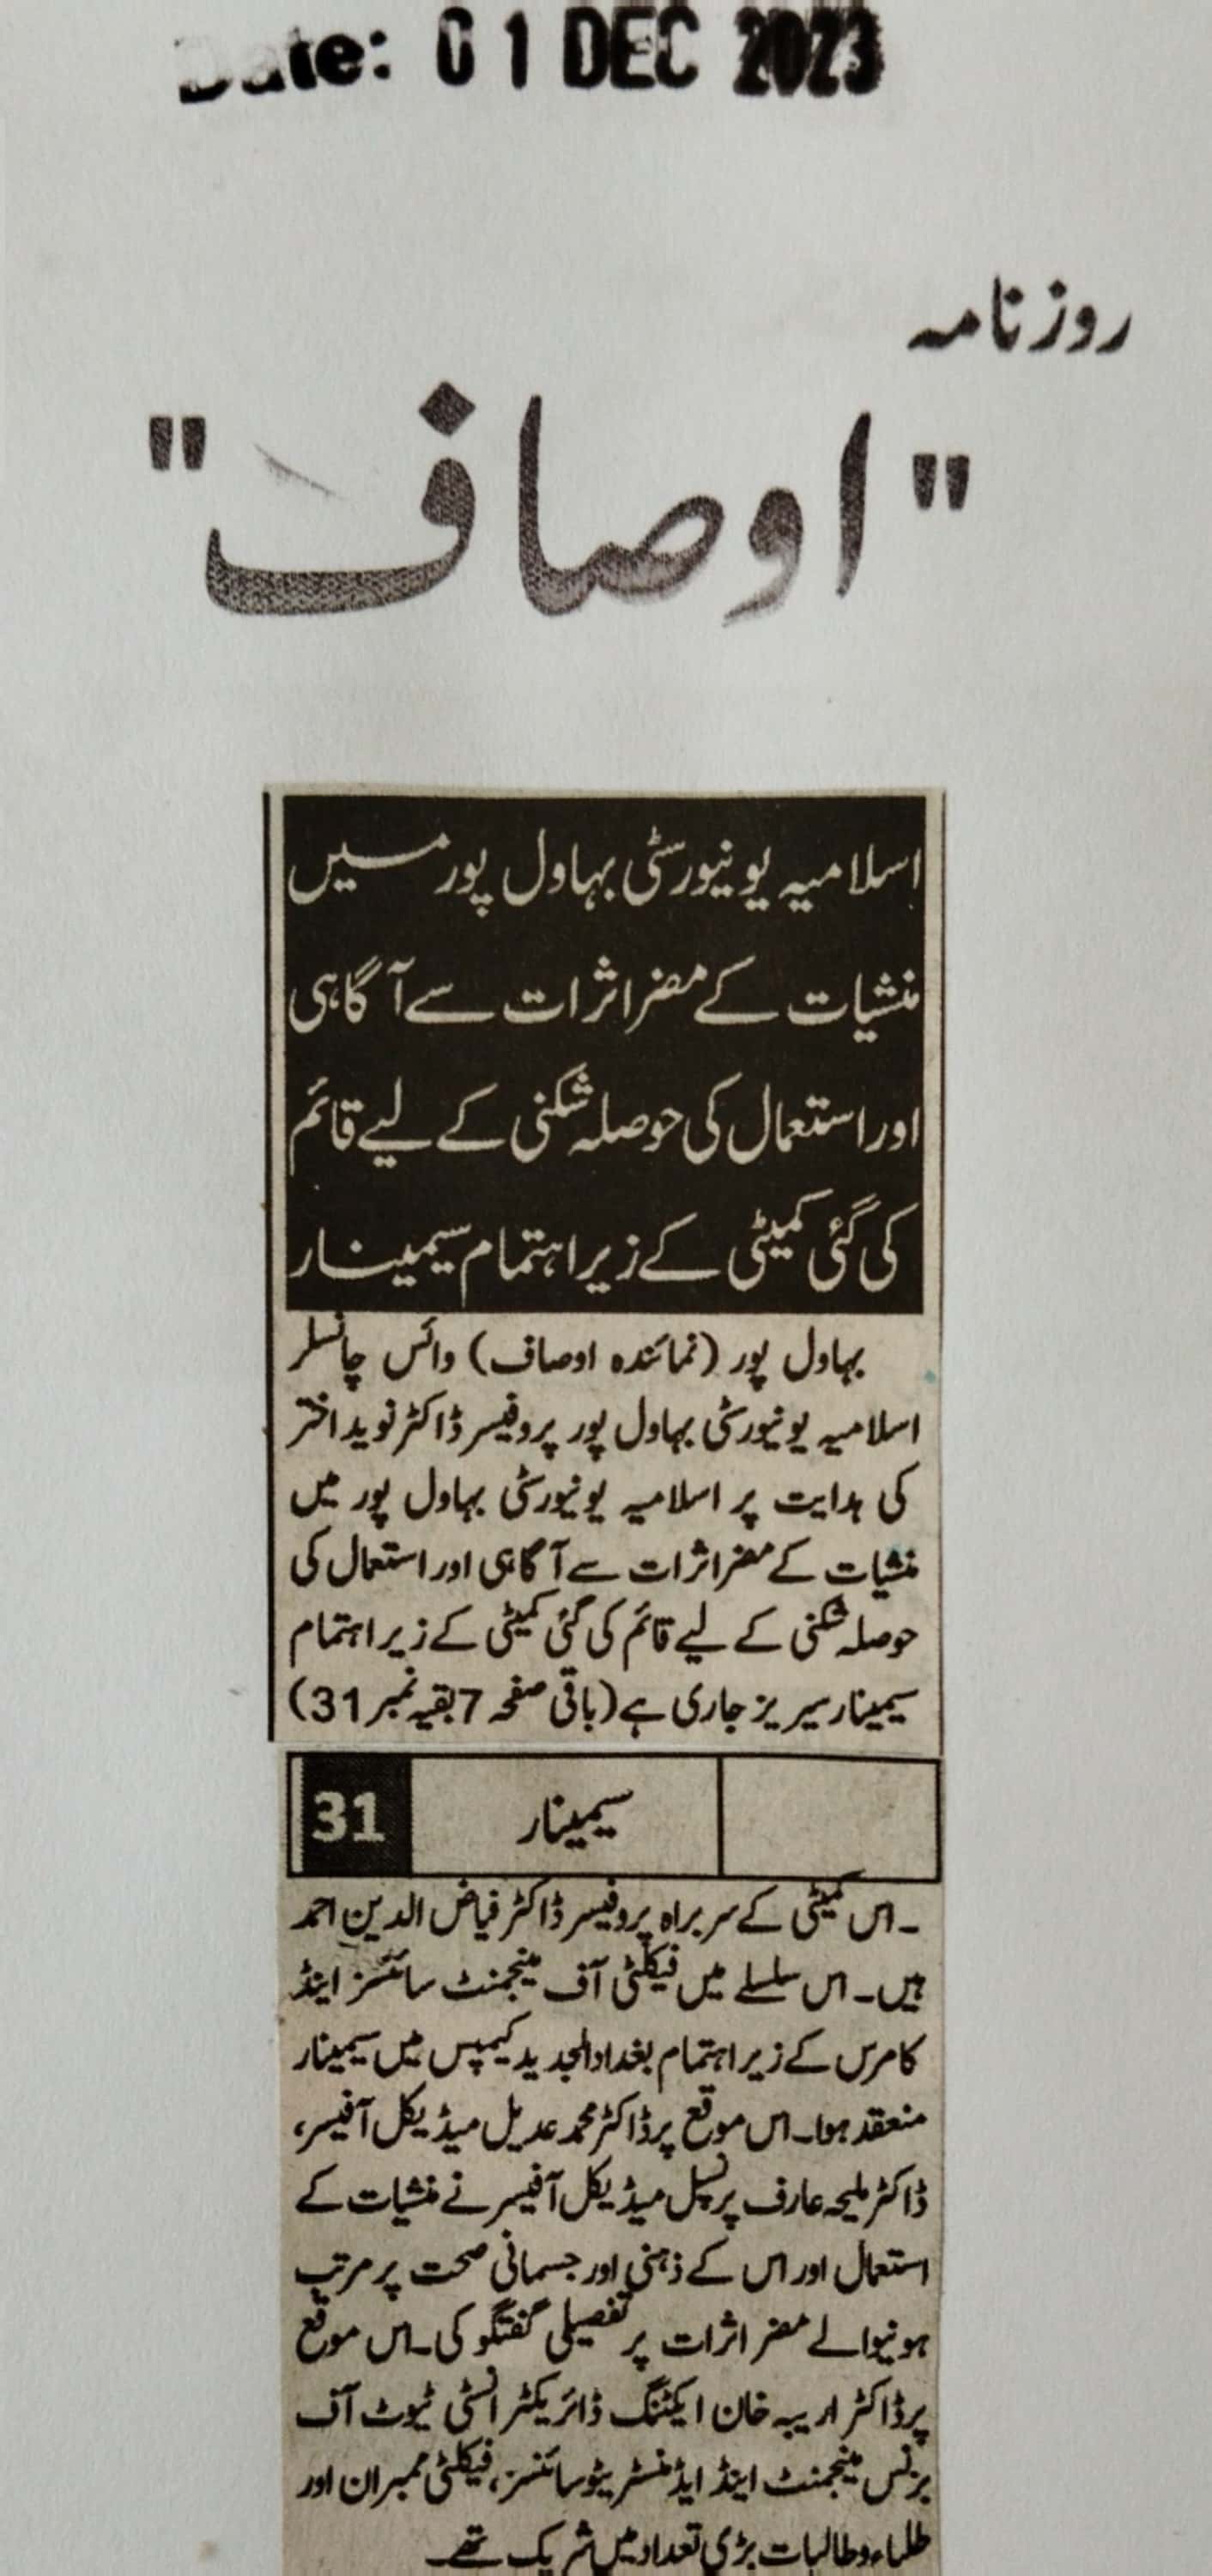 Date: 01 DEC 2023
روزنامہ
"اوصاف"
اسلامیہ یونیورسٹی بہاول پور میں
منشیات کے مضر اثرات سے آگاہی
اور استعمال کی حوصلہ شکنی کے لیے قائم
کی گئی کمیٹی کے زیر اہتمام سیمینار
بہاول پور (نمائندہ اوصاف) وائس چانسلر
اسلامیہ یونیورسٹی بہاول پور پروفیسر ڈاکٹر نوید اختر
کی ہدایت پر اسلامیہ یونیورسٹی بہاول پور میں
منشیات کے مضر اثرات سے آگاہی اور استعمال کی
حوصلہ شکنی کے لیے قائم کی گئی کمیٹی کے زیر اہتمام
سیمینار سیریز جاری ہے (باقی صفحہ 7 بقیہ نمبر 31)
سیمینار 31
۔اس کمیٹی کے سربراہ پروفیسر ڈاکٹر فیاض الدین احمد
ہیں۔ اس سلسلے میں فیکلٹی آف مینجمنٹ سائنسز اینڈ
کامرس کے زیر اہتمام بغداد الجدید کیمپس میں سیمینار
منعقد ہوا۔ اس موقع پر ڈاکٹر محمد عدیل میڈیکل آفیسر،
ڈاکٹر ملیحہ عارف پرنسپل میڈیکل آفیسر نے منشیات کے
استعمال اور اس کے ذہنی اور جسمانی صحت پر مرتب
ہونیوالے مضر اثرات پر تفصیلی گفتگو کی۔ اس موقع
پر ڈاکٹر اریبہ خان ایکٹنگ ڈائریکٹر انسٹی ٹیوٹ آف
بزنس مینجمنٹ اینڈ ایڈمنسٹریٹو سائنسز، فیکلٹی ممبران اور
طلباء و طالبات بڑی تعداد میں شریک تھے